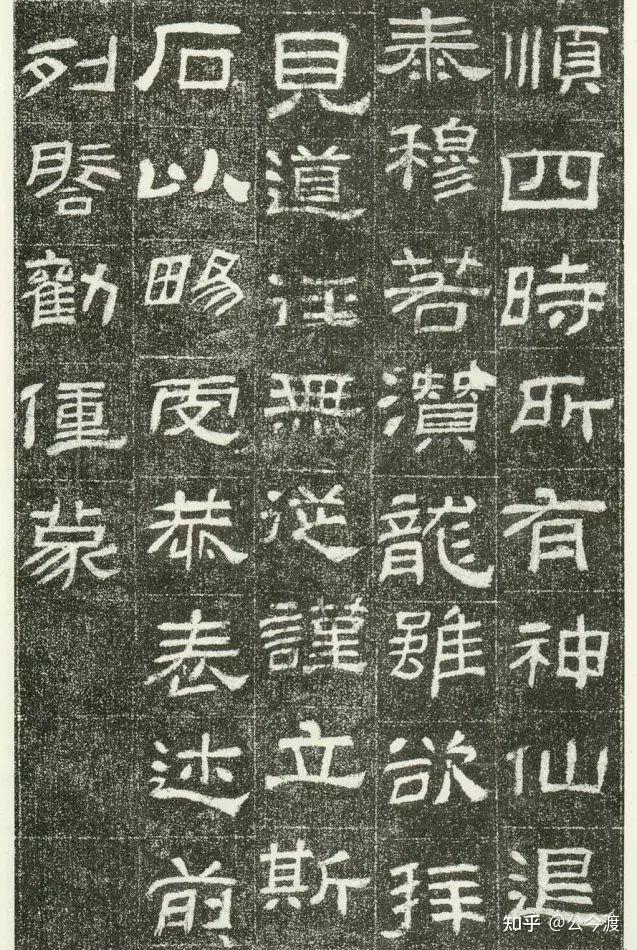 順四時所有神仙退
泰穆若潛龍雖欲拜
見道徑無從謹立斯
石以暢虔恭表述前
列啓勸僮蒙
知乎 @公今渡